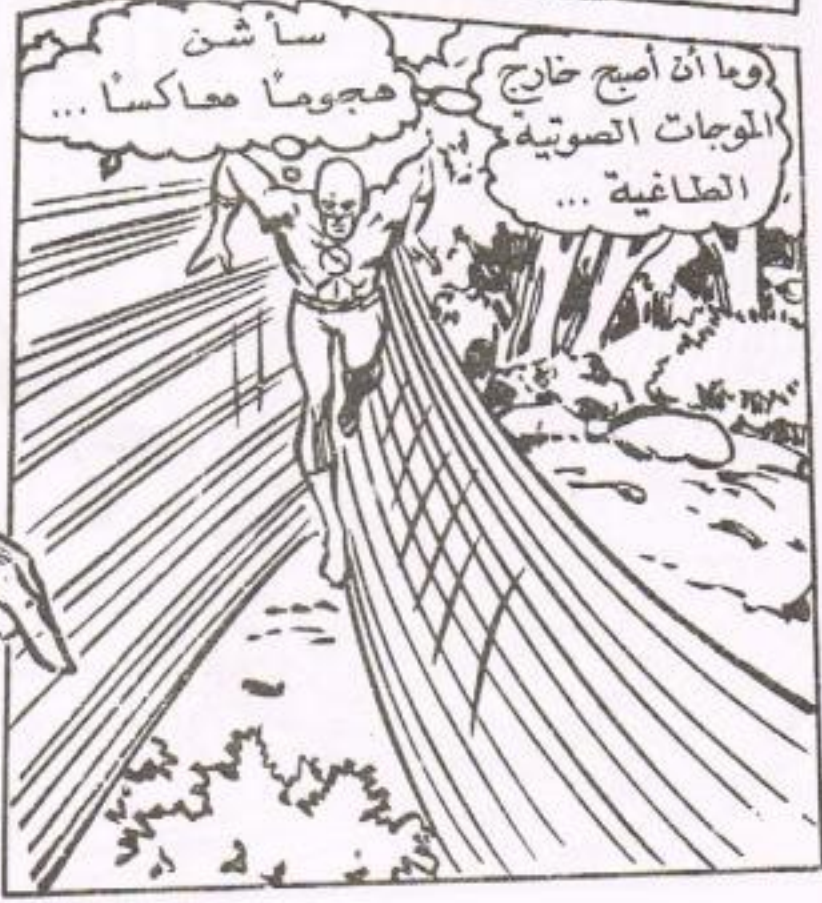 وما أن أصبح خارج
الموجات الصوتية
الطاغية ...
سأشن
هجومًا معاكسًا ...